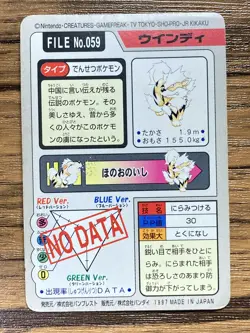 ©Nintendo・CREATURES・GAMEFREAK・TV TOKYO・SHO-PRO・JR KIKAKU
FILE No.059
ウインディ
タイプ
でんせつポケモン
中国に言い伝えが残る
伝説のポケモン。その
美しさゆえ、昔から多
くの人々がこのポケモ
ンの虜になったという
たかさ 1.9m
おもさ 155.0kg
ほのおのいし
RED Ver.
(レッドバージョン)
BLUE Ver.
(ブルーバージョン)
NO DATA
GREEN Ver.
(グリーンバージョン)
出現率(しゅつげんりつ)DATA
技名
にらみつける
PP値
30
効果大
とくになし
鋭い目で相手をひと
にらみ。これで相手
は恐ろしさのあまり防
御力が下がってしまう
発売元/株式会社バンプレスト
販売元/株式会社バンダイ
1997 MADE IN JAPAN